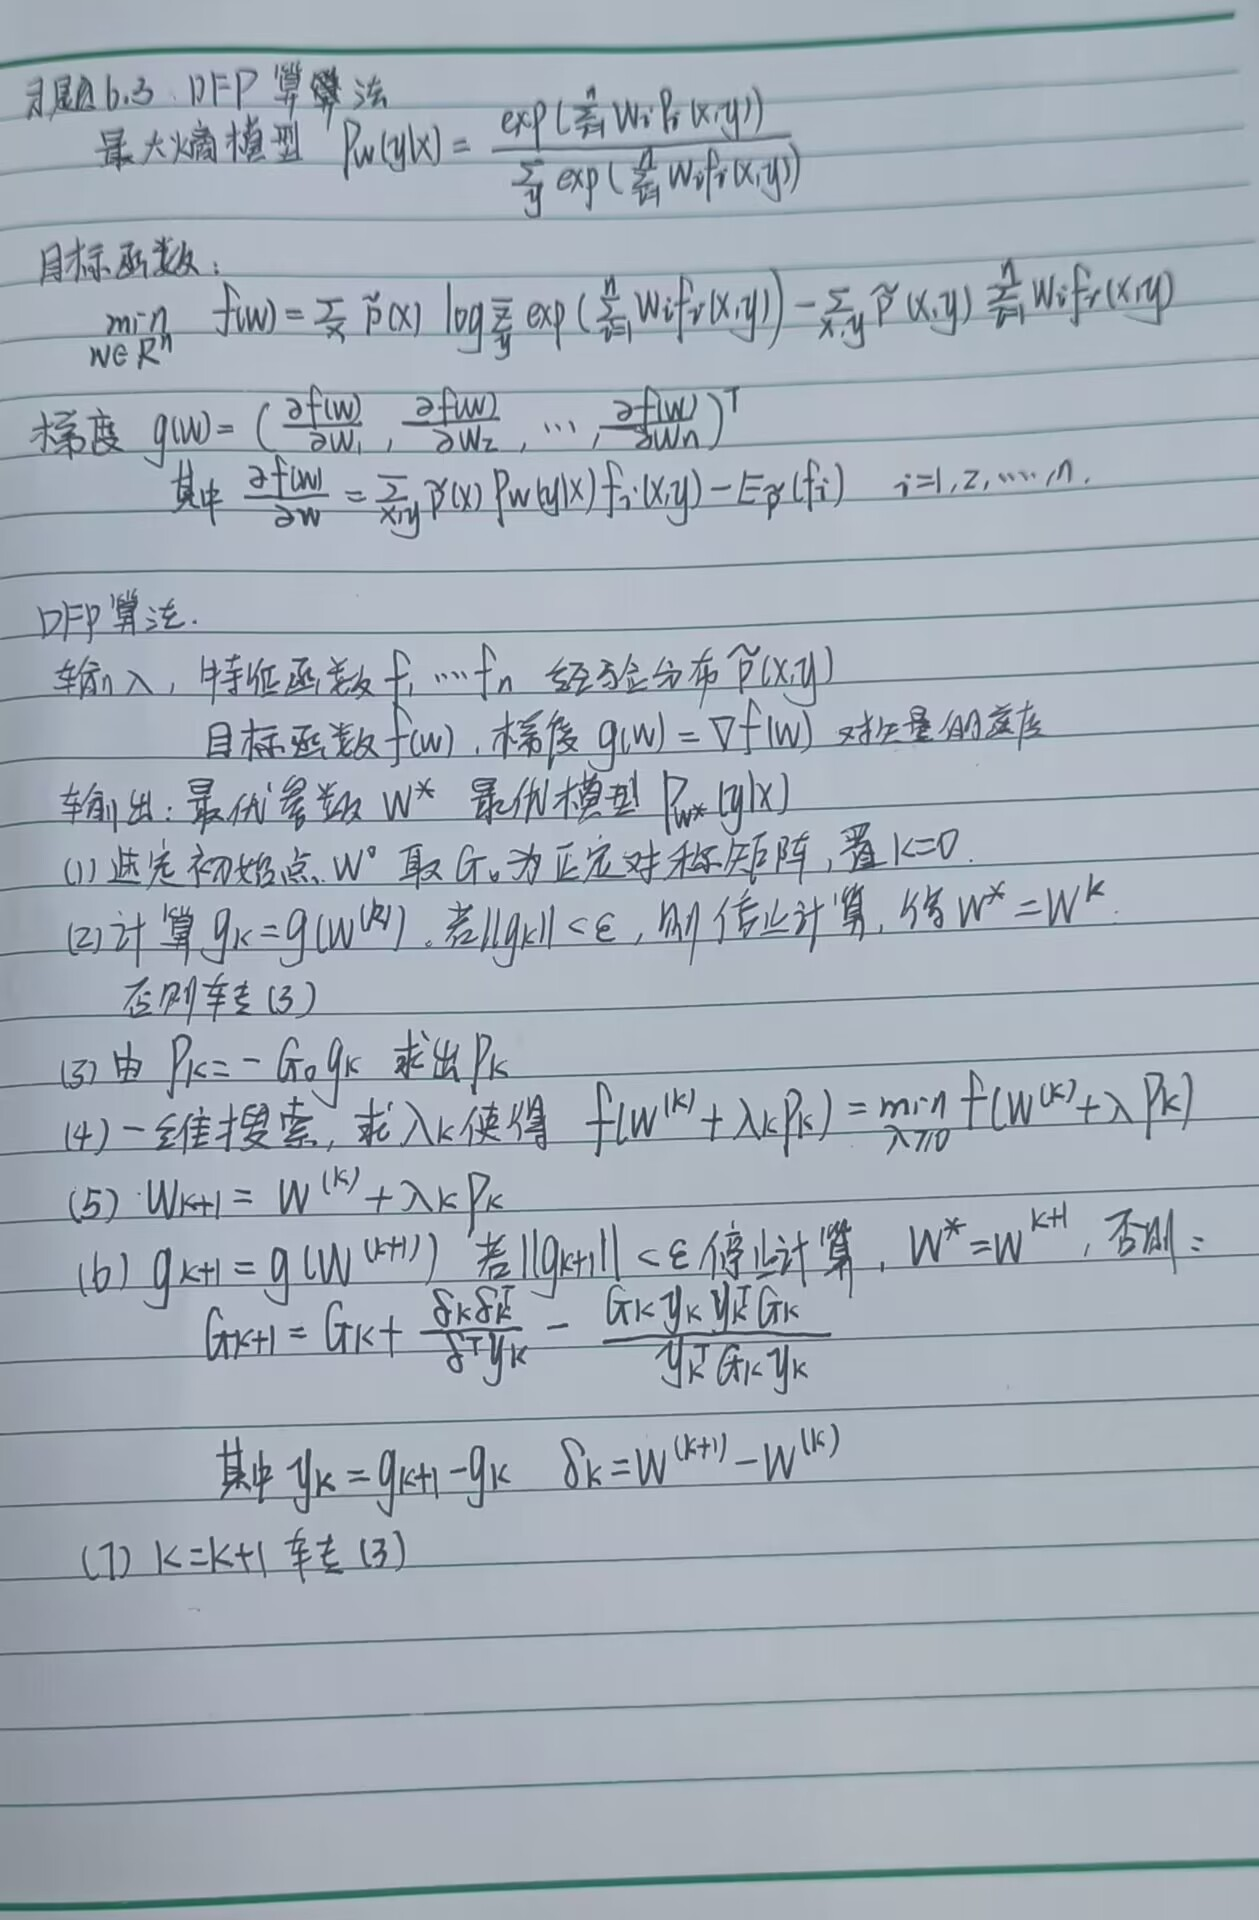 习题6.3 DFP算法
最大熵模型 Pw(y|x) = exp(∑ⁿᵢ₌₁ Wi Pi (x,y)) / ∑y exp(∑ⁿᵢ₌₁ Wi fi(x,y))
目标函数:
min w∈Rⁿ f(w) = ∑x P̃(x) log ∑y exp(∑ⁿᵢ₌₁ Wi fi(x,y)) - ∑x,y P̃(x,y) ∑ⁿᵢ₌₁ Wi fi(x,y)
梯度 g(w) = (∂f(w)/∂w₁, ∂f(w)/∂w₂, ..., ∂f(w)/∂wn)ᵀ
其中 ∂f(w)/∂w = ∑x,y P̃(x) Pw(y|x) fi(x,y) - E_P̃(fi) i=1,2,....,n.
DFP算法.
输入, 特征函数 f₁....fn 经验分布 P̃(x,y)
目标函数 f(w), 梯度 g(w) = ∇f(w)
输出: 最优参数 W* 最优模型 Pw*(y|x)
(1) 选定初始点 W⁰ 取 G₀为正定对称矩阵, 置 k=0.
(2) 计算 gk = g(W⁽ᵏ⁾). 若||gk|| < ε, 则停止计算, 得 W* = Wᵏ.
否则转走(3)
(3) 由 Pk = - G₀ gk 求出 Pk
(4) 一维搜索, 求 λk 使得 f(W⁽ᵏ⁾ + λk Pk) = min λ≥0 f(W⁽ᵏ⁾ + λ Pk)
(5) Wk+1 = W⁽ᵏ⁾ + λk Pk
(6) gk+1 = g(W⁽ᵏ⁺¹⁾) 若||gk+1|| < ε 停止计算, W* = Wᵏ⁺¹, 否则:
Gk+1 = Gk + δkδkᵀ / δᵀyk - Gk yk ykᵀ Gk / ykᵀ Gk yk
其中 yk = gk+1 - gk δk = W⁽ᵏ⁺¹⁾ - W⁽ᵏ⁾
(7) k=k+1 转走(3)